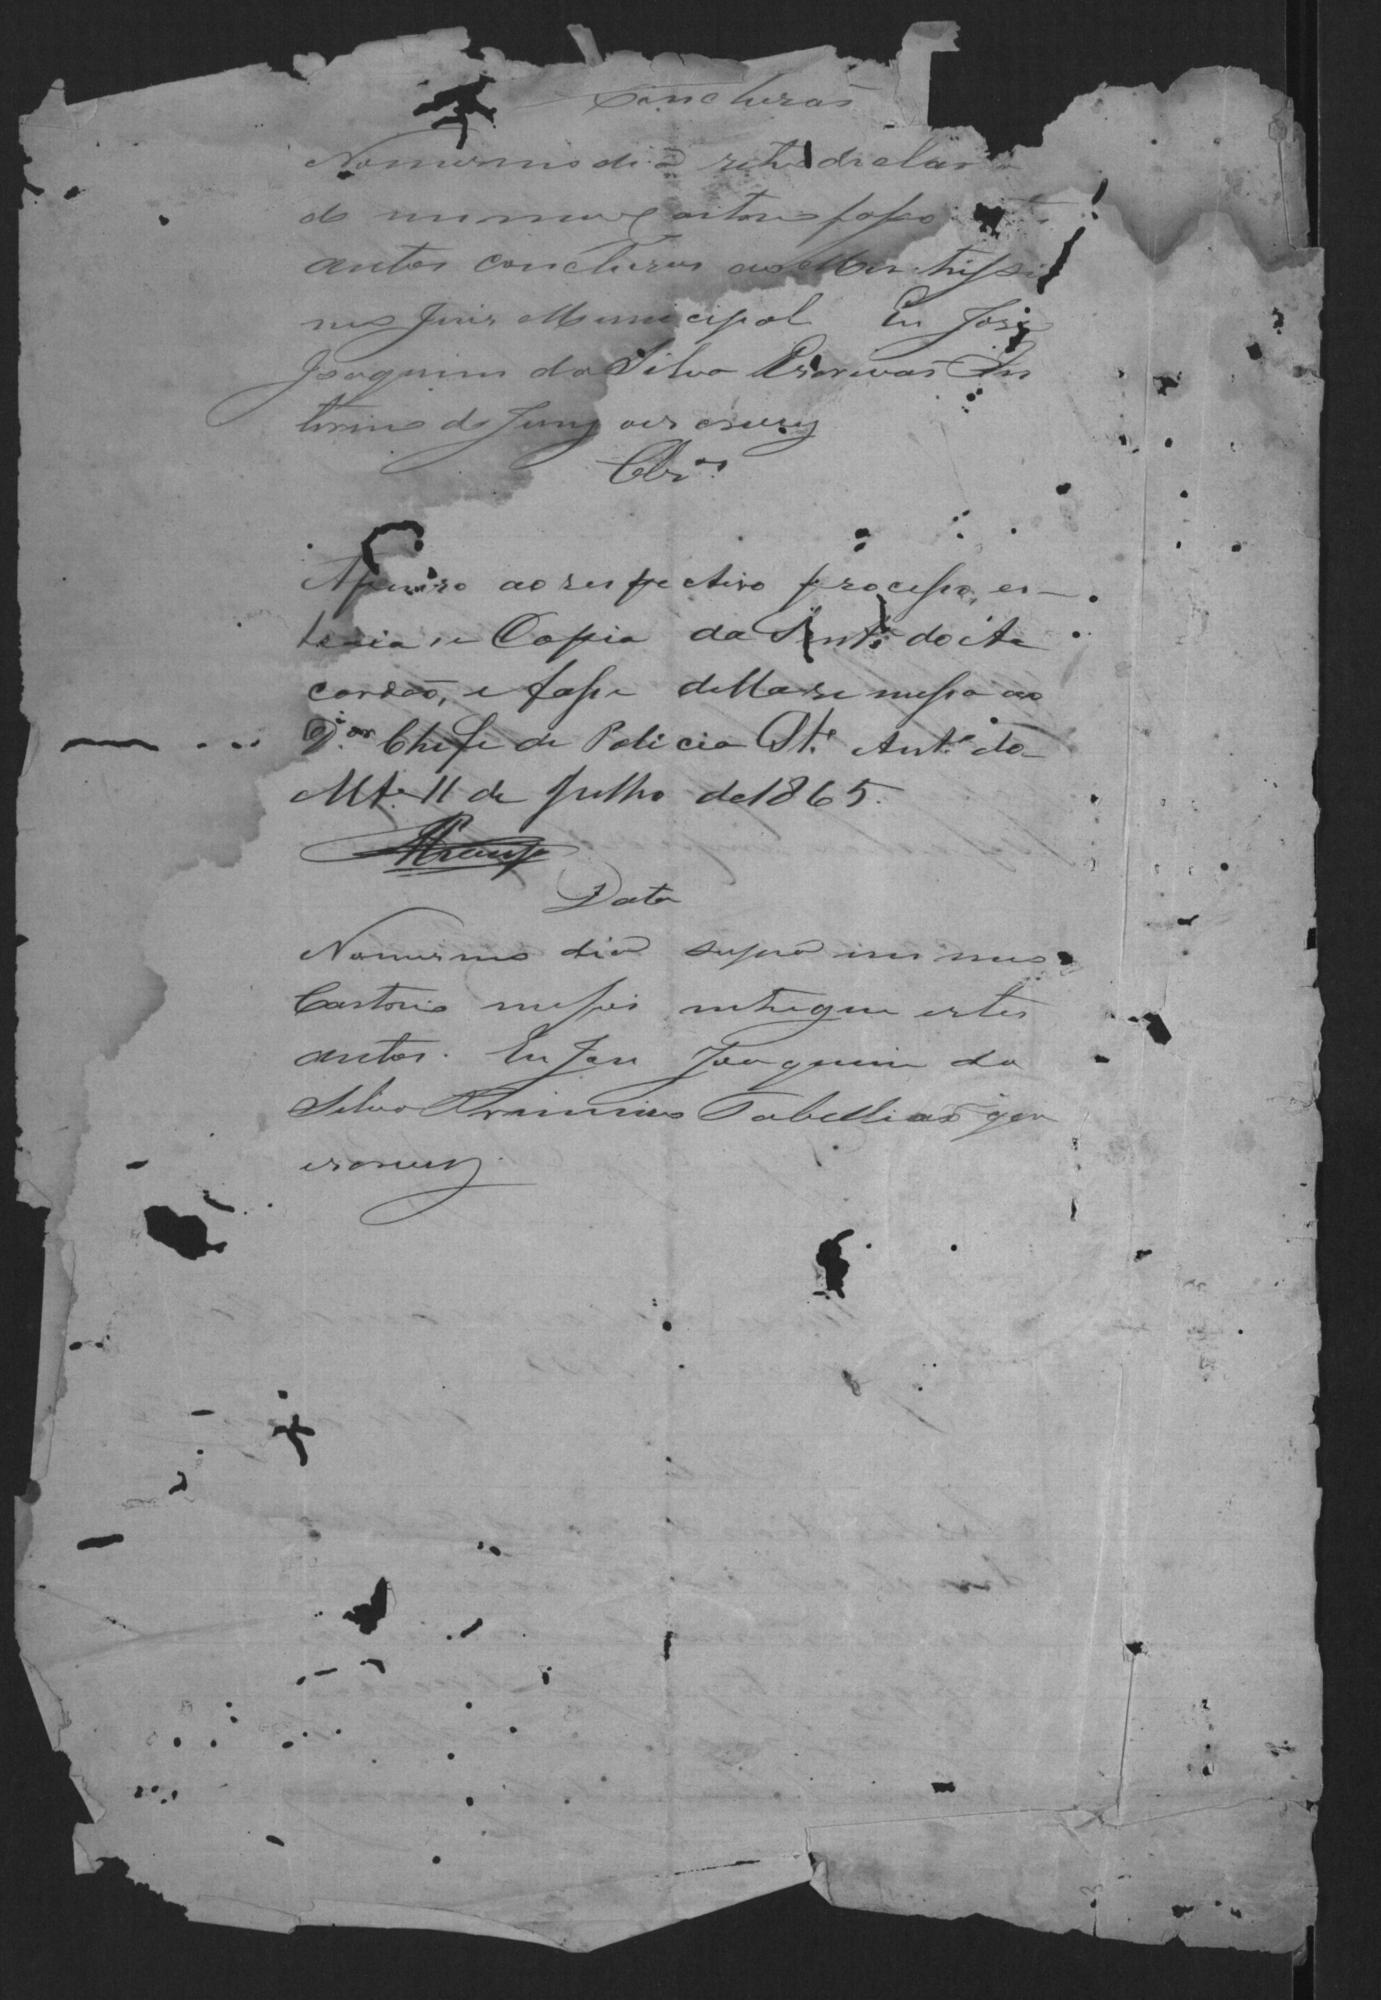 Concluzaõ
No mesmo dia retro declara
do in meu Cartorio faço estes
autos concluzos ao Meritissi
mo Juis Municipal Eu José
Joaquim da Silva Escrivaõ In
terino do Jury o escrevy
Clz.os
Apenso ao respectivo processo, ex-
tráia se Copia da Sentª do A
cordaõ, e fassa della remessa ao
Dor Chefe de Policia Stº Antº do
Mte 11 de Julho de 1865.
Araujo
Data
No mesmo dia supra in meu
Cartorio me foi entregue estes
autos. Eu José Joaquim da
Silva Tabelliaõ que
escrevy